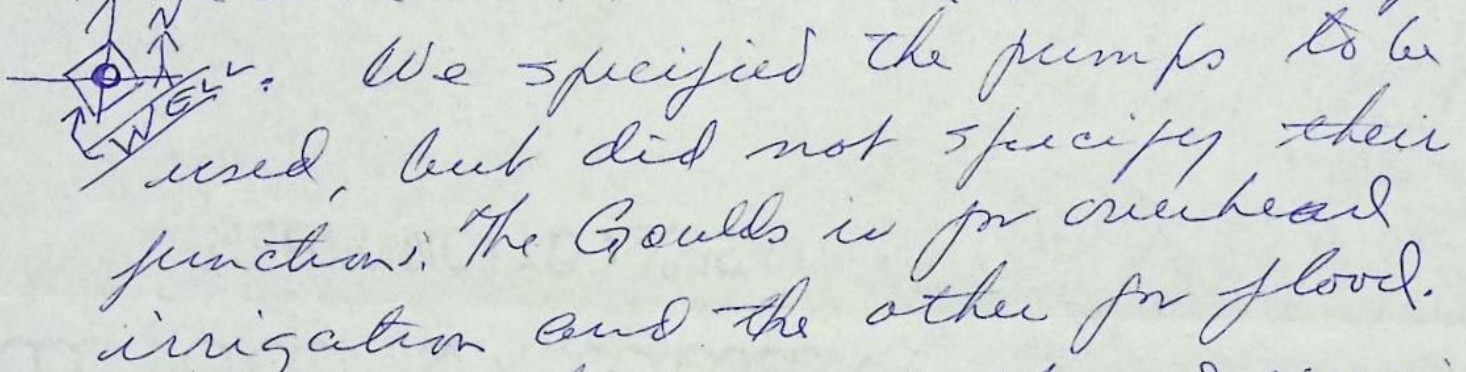 N
WELL. We specified the pumps to be
used, but did not specify their
functions. The Goulds is for overhead
irrigation and the other for flood.